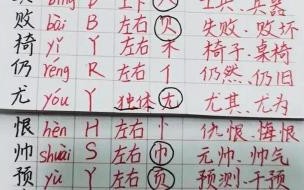 败 bài B 左右 贝 失败、败坏
椅 yǐ Y 左右 木 椅子、桌椅
仍 réng R 左右 亻 仍然、仍旧
尤 yóu Y 独体 尢 尤其、尤为
恨 hèn H 左右 忄 仇恨、悔恨
帅 shuài S 左右 巾 元帅、帅气
预 yù Y 左右 页 预测、干预